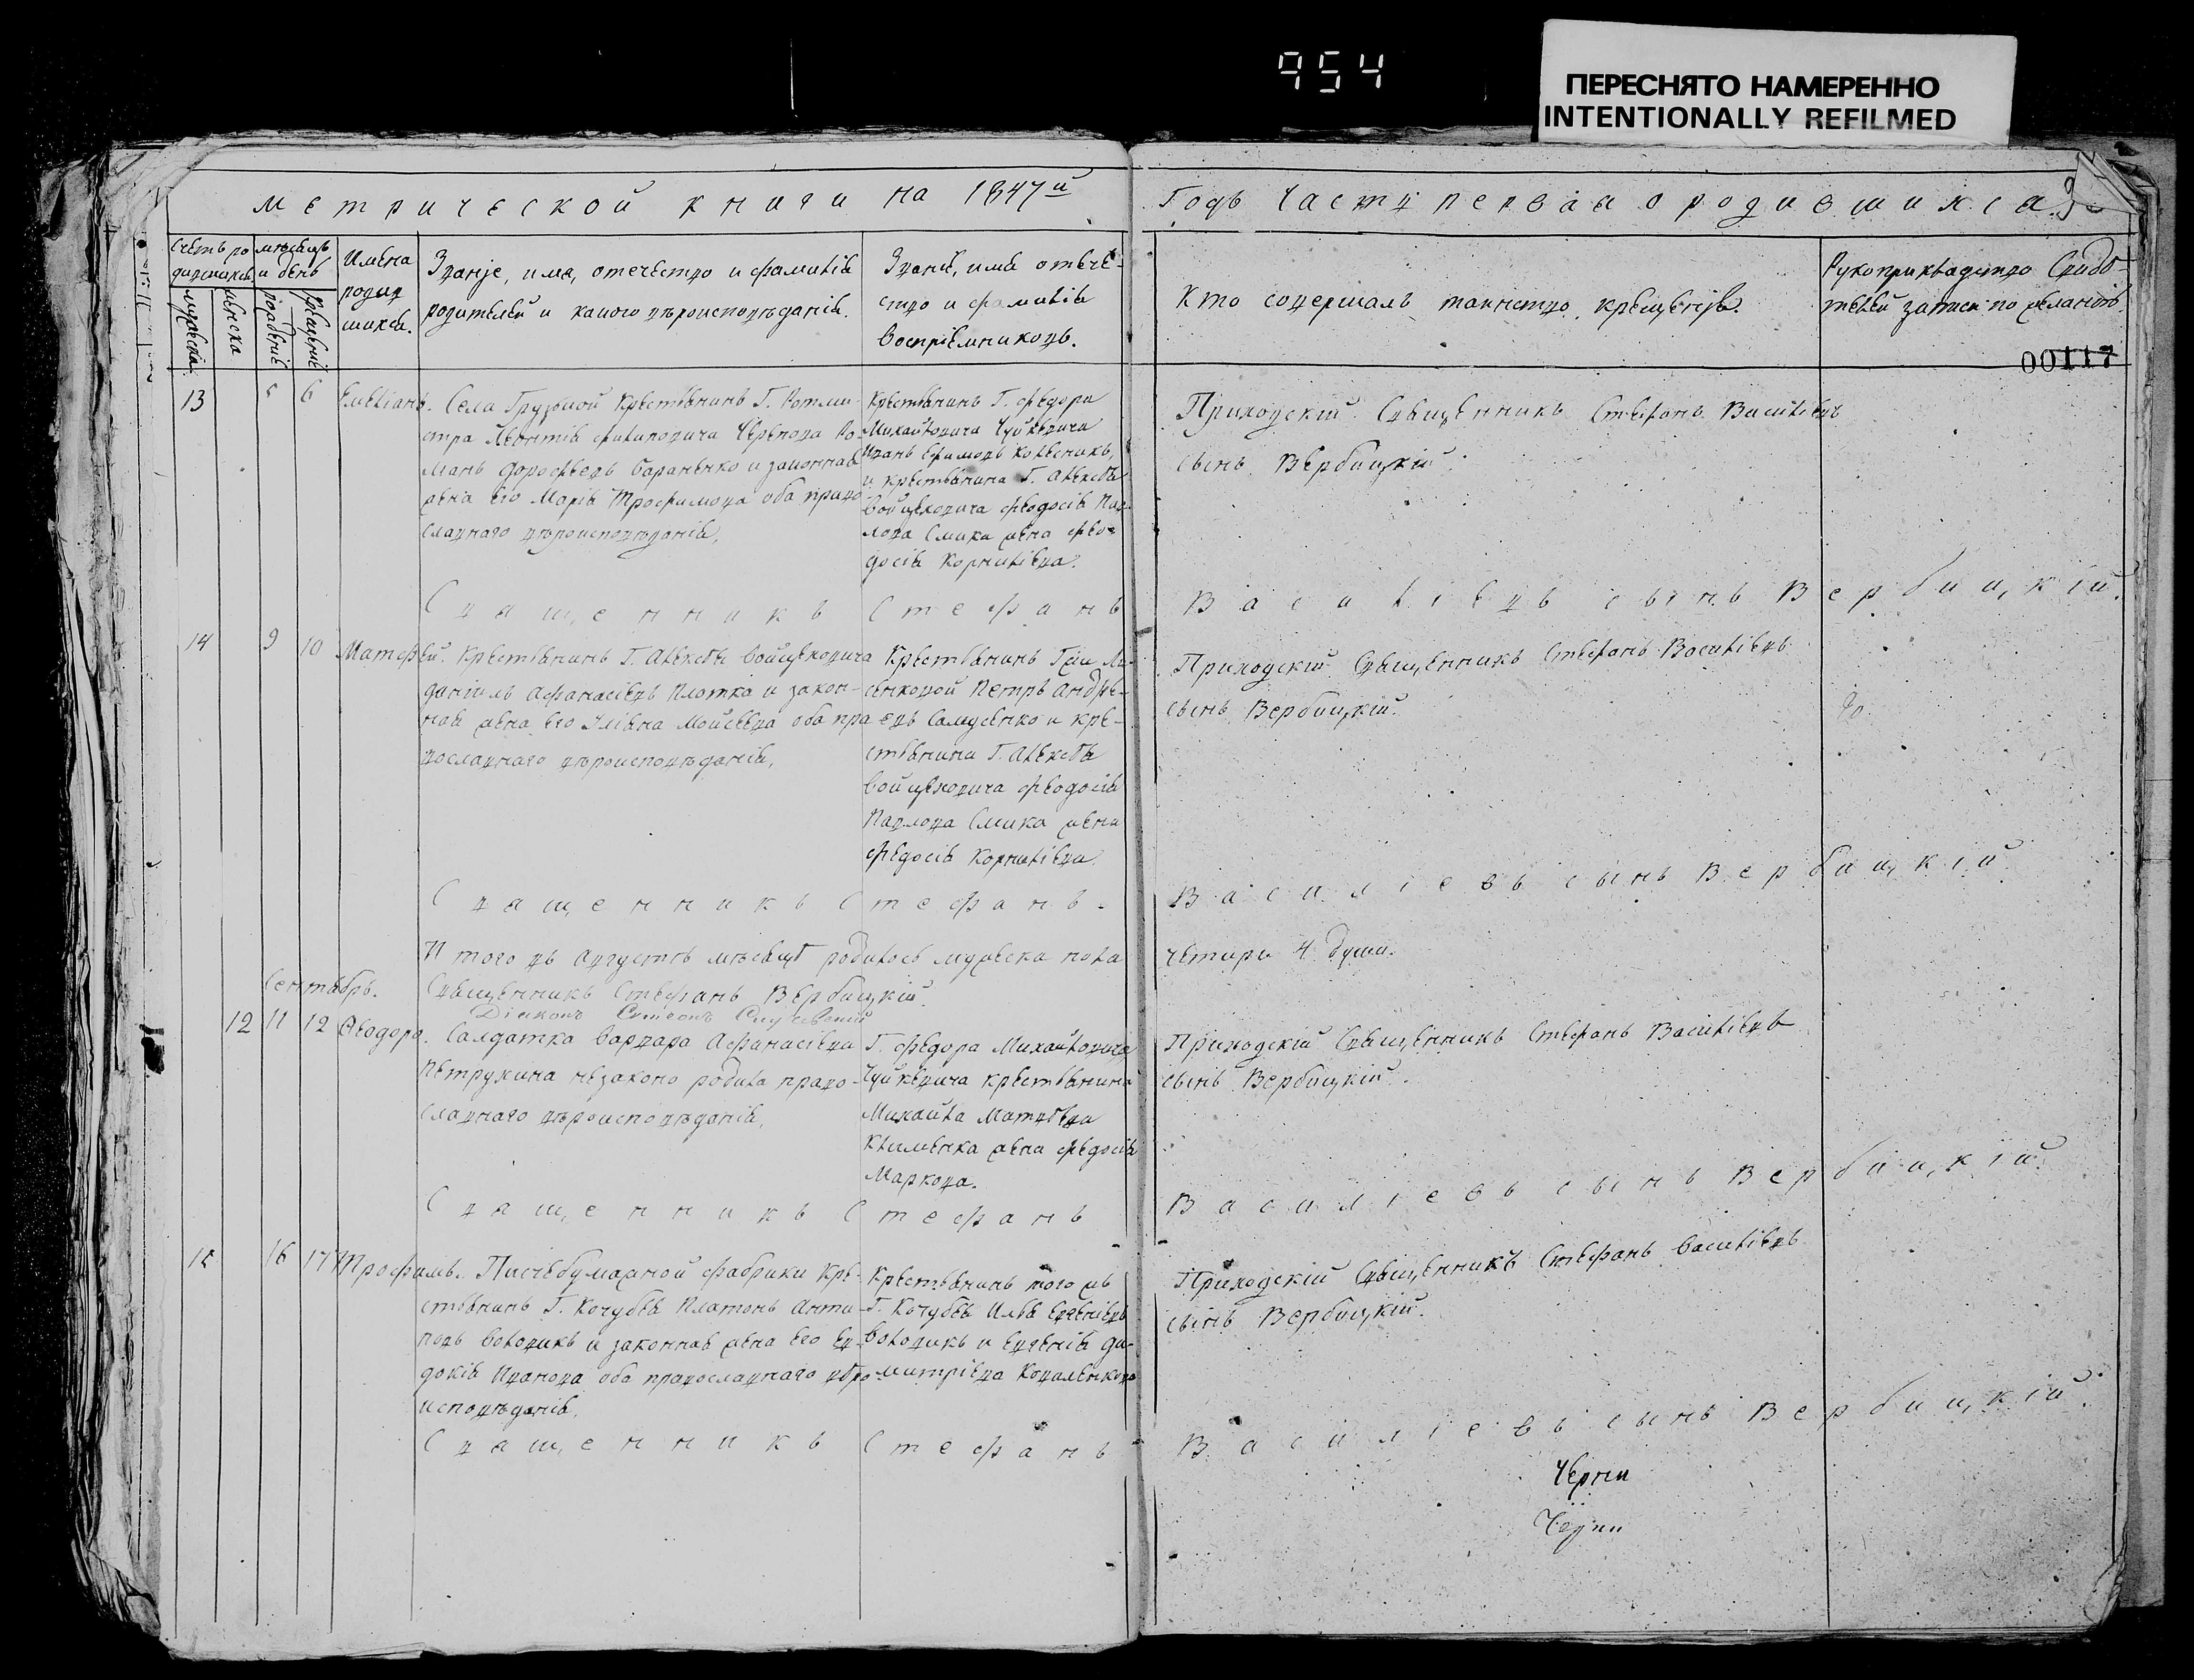 954
ПЕРЕСНЯТО НАМЕРЕННО
INTENTIONALLY REFILMED
метрической книги на 1847й
Годъ Часть первая о родившихся.
Счетъ ро
дившихся
мѣсяцъ
и день
мужеска
женска
рожденіе
крещеніе
Имена
родив
шихся.
Званіе, имя, отечество и фамилія
родителей и какого вѣроисповѣданія.
Званіе, имя отече-
ство и фамилія
воспріемниковъ.
Кто совершалъ таинство крещенія.
Рукоприкладство Свидѣ-
телей записи по желанію.
00117
13 5 6 Емеліанъ.
Села Грузкой Крестьянинъ Г. Ротми-
стра Леонтія Филиповича Черепова Ро-
манъ Дорофѣевъ Бараненко и законная
жена его Марія Трофимова оба право-
славнаго вѣроисповѣданія,
Крестьянинъ Г. Федора
Михайловича Чуйкевича
Иванъ Ефимовъ Колесникъ,
и крестьянина Г. Алексѣя
Войцеховича Феодосія Пав-
лова Смика жена Фео-
досія Корниліева.
Приходскій Священникъ Стефанъ Василіевъ
сынъ Вербицкій.
Священникъ Стефанъ
Василіевъ сынъ Вербицкій.
14 9 10 Матфей.
Крестьянинъ Г. Алексѣя Войцеховича
Даніилъ Афанасіевъ Плотка и закон-
ная жена его Уліяна Мойсеева оба пра-
вославнаго вѣроисповѣданія,
Крестьянинъ Гжи Ли-
сенковой Петръ Андрѣ-
евъ Самусенко и кре-
стьянина Г. Алексѣя
Войцеховича Феодосія
Павлова Смика жена
Федосія Корниліева.
Приходскій Священникъ Стефанъ Василіевъ
сынъ Вербицкій.
Священникъ Стефанъ
Василіевъ сынъ Вербицкій
Итого въ Августѣ мѣсяцѣ родилось мужеска пола
четыри 4 души.
Священникъ Стефанъ Вербицкій.
Діаконъ Симеонъ
Сентябрь.
12 11 12 Ѳеодора.
Салдатка Варвара Афанасіева
Петрухина незаконо родила право-
славнаго вѣроисповѣданія,
Г. Федора Михайловича
Чуйкевича крестьянина
Михайла Матвѣева
Клименка жена Федосія
Маркова.
Приходскій Священникъ Стефанъ Василіевъ
сынъ Вербицкій.
Священникъ Стефанъ
Василіевъ сынъ Вербицкій.
15 16 17 Трофимъ.
Писчебумажной фабрики Кре-
стьянинъ Г. Кочубея Платонъ Анти-
повъ Воловикъ и законная жена его Ев-
докія Иванова оба православнаго вѣро-
исповѣданія,
Крестьянинъ того жъ
Г. Кочубея Илья Евгеніевъ
Воловикъ и Евгенія Ди-
митріева Коваленкова
Приходскій Священникъ Стефанъ Василіевъ
сынъ Вербицкій.
Священникъ Стефанъ
Василіевъ сынъ Вербицкій.
Черни